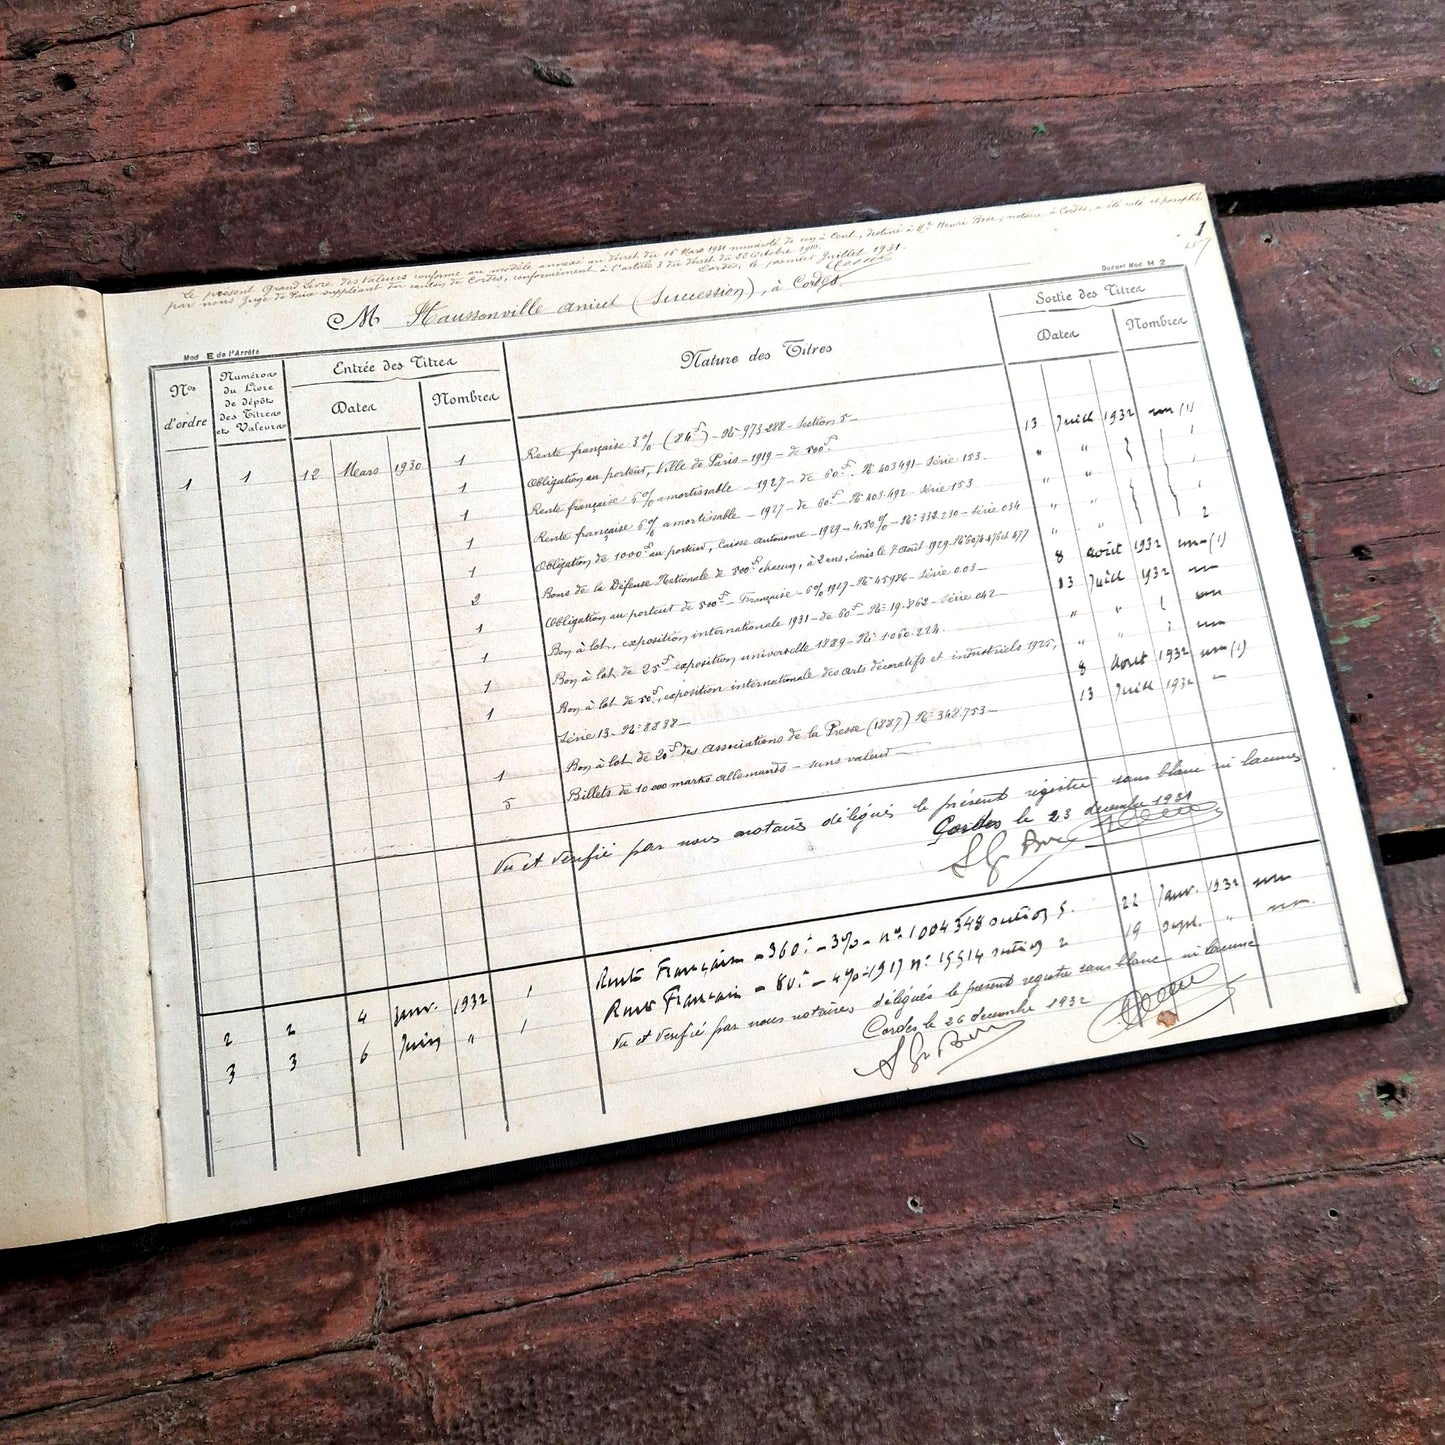 Le présent Grand Livre des Valeurs conforme au modèle annexé au décret du 16 Mars 1931 numéroté de un à cent, destiné à Me Henri Bosc, notaire à Cordes, a été coté et paraphé
par nous Juge de Paix suppléant du canton de Cordes, conformément à l'article 3 du décret du 22 Octobre 1910.
Cordes, le premier Juillet 1931.
1
M Haussonville Anicet (Succession), à Cordes.
Mod E de l'Arrêté
Mod. M. 2
Nos d'ordre
Numéros du Livre de dépôt des Titres et Valeurs
Entrée des Titres
Dates
Nombres
Nature des Titres
Sortie des Titres
Dates
Nombres
1 1 12 Mars 1930 1 Rente française 3% (84f) - No 973.288 - Section 5 - 13 Juill 1932 un (1)
1 Obligation au porteur, Ville de Paris - 1919 - de 500f. " " 1
1 Rente française 6% amortissable - 1927 - de 60f. No 403491 - Série 153. " " 1
1 Rente française 6% amortissable - 1927 - de 60f - No 403.492 - Série 153 " " 1
1 Obligation de 1000f au porteur, Caisse autonome - 1929 - 4,50% - No 332.230 - Série 034 " " 1
2 Bons de la Défense Nationale de 500f chacun, à 2 ans, émis le 7 Août 1929 - No 6076.476 et 477 " " 2
1 Obligation au porteur de 500f - Française - 6% 1927 - No 45986 - Série 003 - 8 août 1932 un (1)
1 Bon à lot, exposition internationale 1931 - de 60f - No 19.862 - Série 042 - 13 Juill 1932 un
1 Bon à lot de 25f exposition universelle 1889 - No 1.060.224. " " un
1 Bon à lot de 50f, exposition internationale des arts décoratifs et industriels 1925, " " un
Série 13 - No 8838 - 8 Aout 1932 un (1)
1 Bon à lot de 20f des Associations de la Presse (1887) No 348.753 - 13 Juill 1932
5 Billets de 10 000 marks allemands - sans valeur -
Vu et vérifié par nous notaires délégués le présent registre sans blanc ni lacunes
Cordes le 23 decembre 1931
2 2 4 Janv. 1932 1 Rente Française - 360f - 3% - no 1004548 section 5. 22 Janv. 1932 un
3 3 6 Juin " 1 Rente Française - 80f - 4% 1917 no 15514 section 2 19 Sept. " un
Vu et vérifié par nous notaires délégués le présent registre sans blanc ni lacune
Cordes le 26 decembre 1932